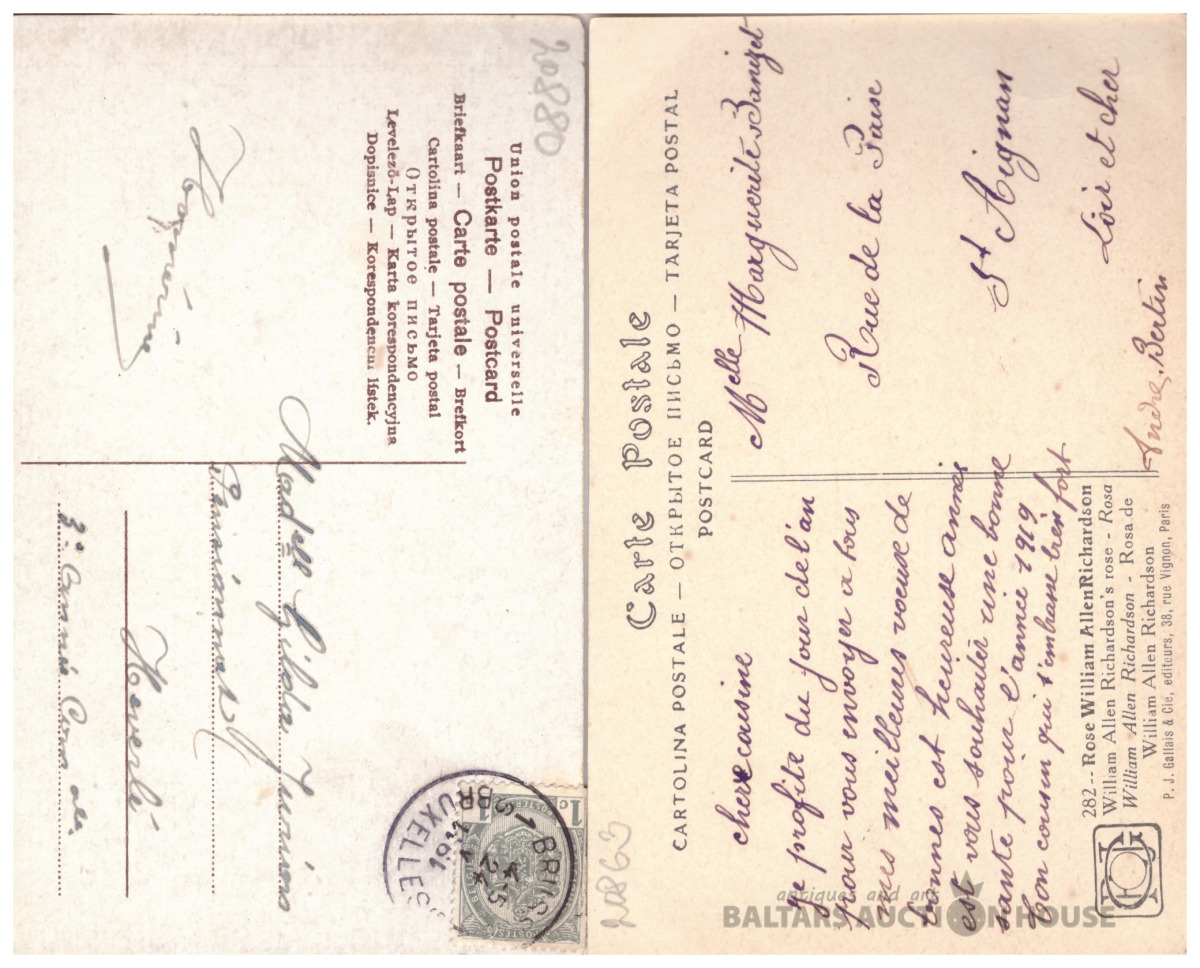 20880
Union postale universelle
Postkarte — Postcard
Briefkaart — Carte postale — Brefkort
Cartolina postale — Tarjeta postal
Открытое письмо
Levelező-Lap — Karta korespondencyjna
Dopisnice — Korespondenční lístek.
Madelle Gilda
Heverlé
1c
1c
BRUXELLES
BRUSSEL
20862
Carte Postale
CARTOLINA POSTALE — ОТКРЫТОЕ ПИСЬМО — TARJETA POSTAL
POSTCARD
chere cousine
je profite du jour de l'an
pour vous envoyer a tous
mes meilleures voeuse de
bonnes est heureuse année
est vous souhaiter une bonne
sante pour l'année 1919
ton cousin qui t'embrasse bien fort
Melle Marguerite Banizet
Rue de la Paise
St Aignan
Loir et cher
André Bertin
282 -- Rose William Allen Richardson
William Allen Richardson's rose - Rosa
William Allen Richardson - Rosa de
William Allen Richardson
P. J. Gallais & Cie, editeurs, 38, rue Vignon, Paris
antiques and art
BALTARS AUCTION HOUSE